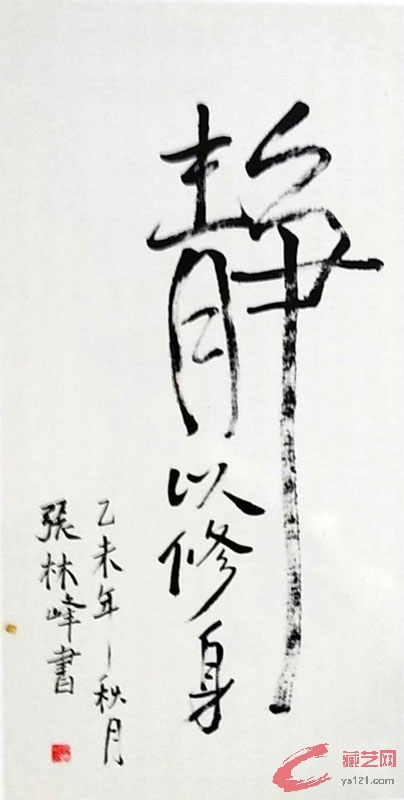 静以修身
乙未年秋月
張林峰書
藏艺网
ys121.com